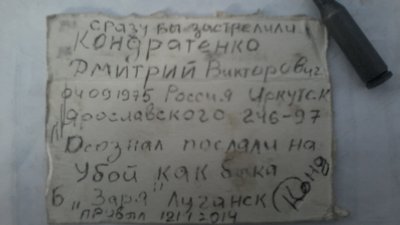 сразу вы застрелили
Кондратенко
Дмитрий Викторович
04 09 1975 Россия Иркутск
Ярославского 246-97
Осознал послали на
убой как быка
Б „Заря" Луганск Коня
прибыл 2014